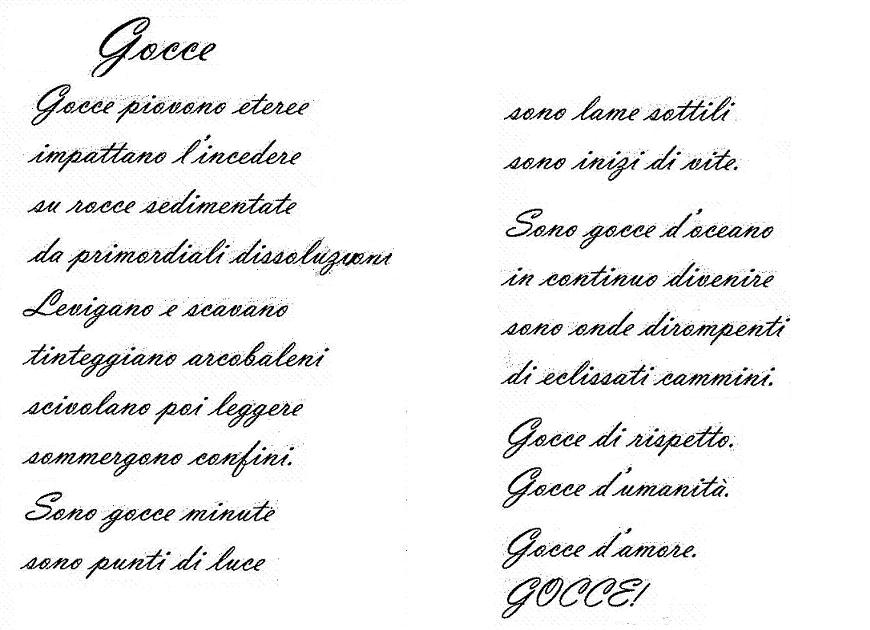 Gocce
Gocce piovono eteree
impattano l'incedere
su rocce sedimentate
da primordiali dissoluzioni
Levigano e scavano
tinteggiano arcobaleni
scivolano poi leggere
sommergono confini.
Sono gocce minute
sono punti di luce
sono lame sottili
sono inizi di vite.
Sono gocce d'oceano
in continuo divenire
sono onde dirompenti
di eclissati cammini.
Gocce di rispetto.
Gocce d'umanità.
Gocce d'amore.
GOCCE!